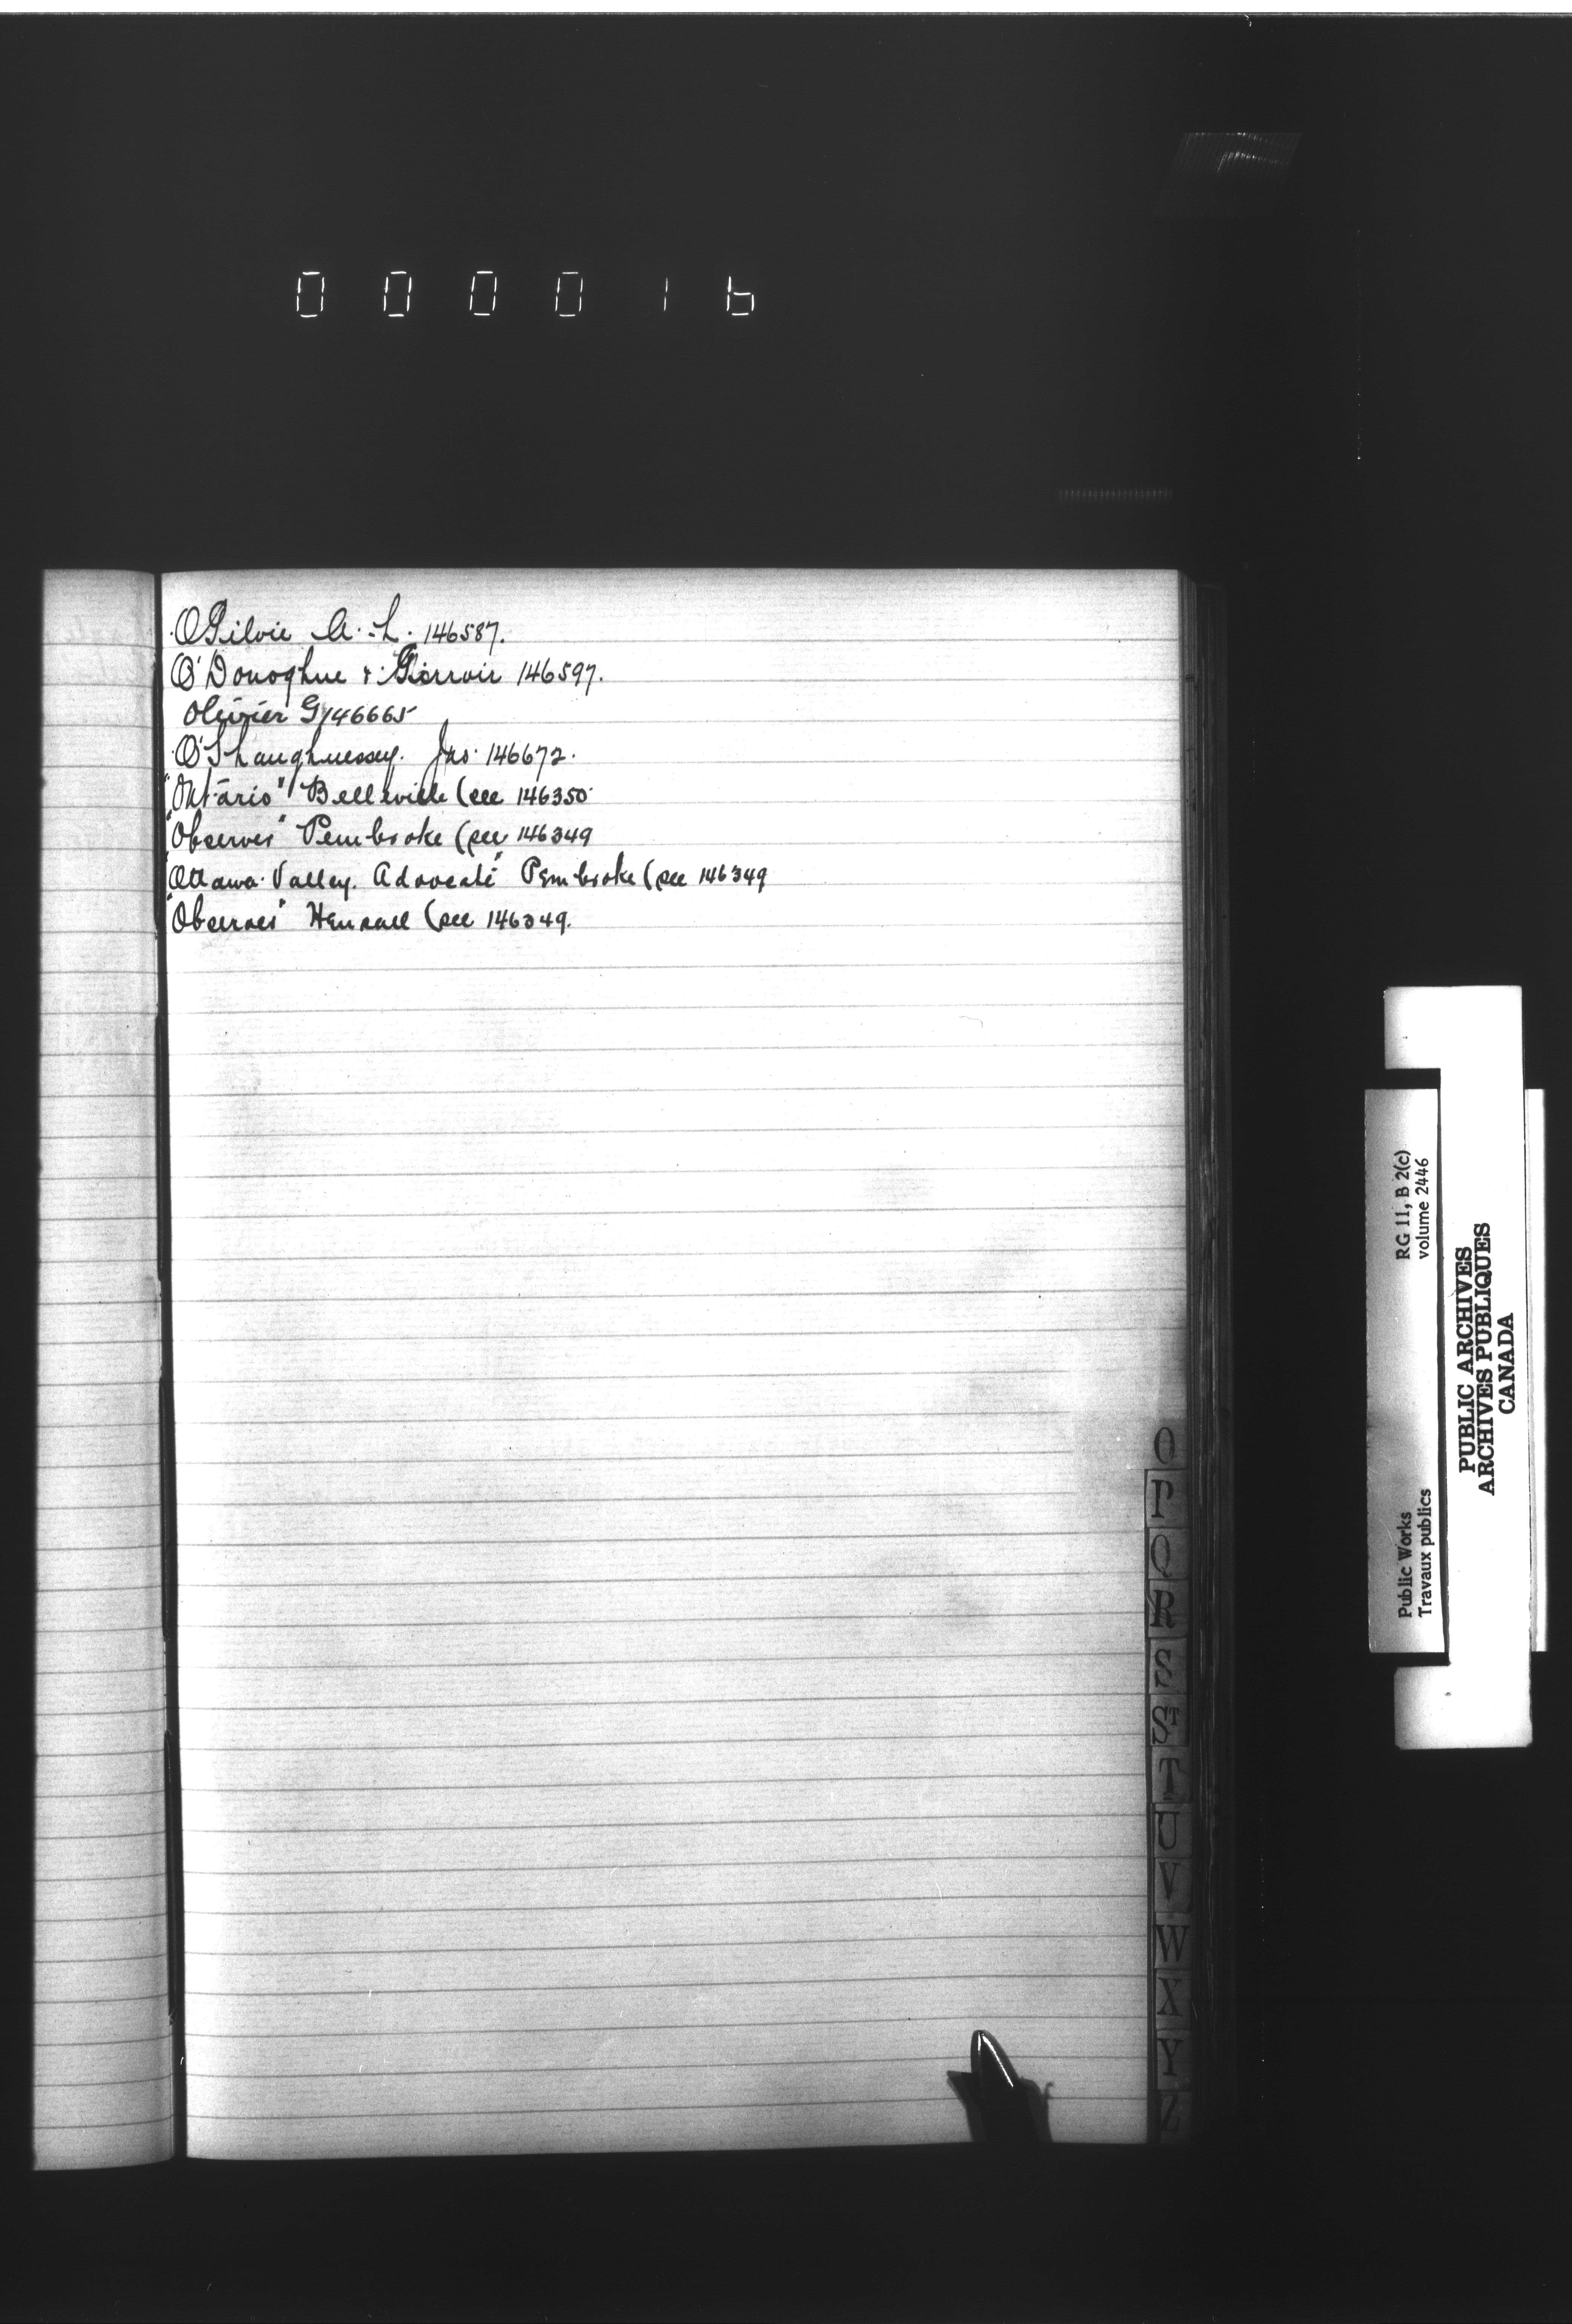 000016
OGilvie A. L. 146587.
O'Donoghue & Girroir 146597.
Olivier G 146665
O'Shaughnessy. Jas. 146672.
"Ontario" Belleville (see 146350
"Observer" Pembroke (see 146349
"Ottawa Valley. Advocate" Pembroke (see 146349
"Observer" Hensall (see 146349.
O
P
Q
R
S
ST
T
U
V
W
X
Y
Z
Public Works
Travaux publics
RG 11, B 2(c)
volume 2446
PUBLIC ARCHIVES
ARCHIVES PUBLIQUES
CANADA